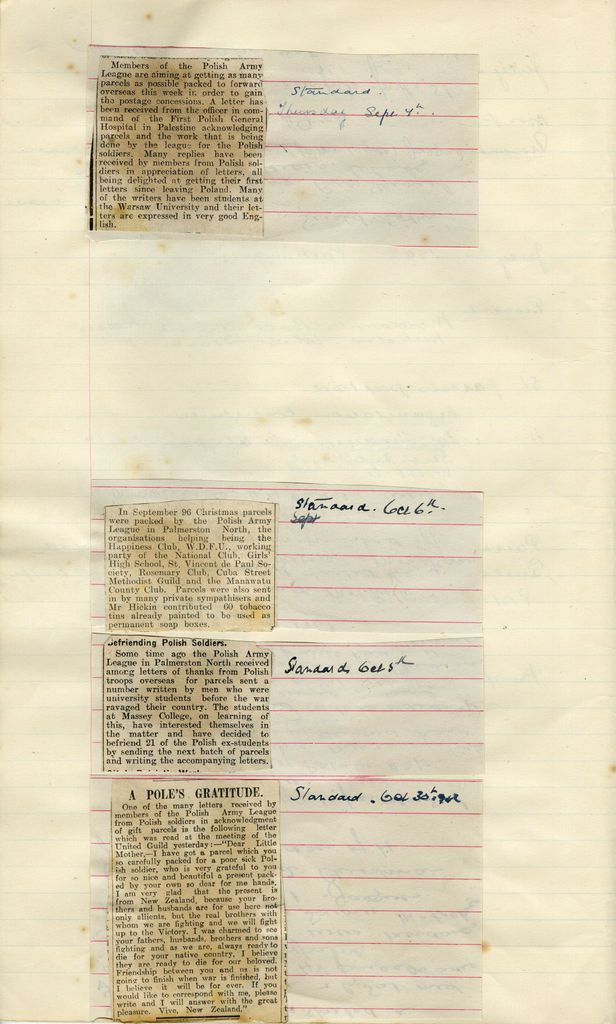 Members of the Polish Army
League are aiming at getting as many
parcels as possible packed to forward
overseas this week in order to gain
the postage concessions. A letter has
been received from the officer in com-
mand of the First Polish General
Hospital in Palestine acknowledging
parcels and the work that is being
done by the league for the Polish
soldiers. Many replies have been
received by members from Polish sol-
diers in appreciation of letters, all
being delighted at getting their first
letters since leaving Poland. Many
of the writers have been students at
the Warsaw University and their let-
ters are expressed in very good Eng-
lish.
Standard.
Thursday Sept 4th.
In September 96 Christmas parcels
were packed by the Polish Army
League in Palmerston North, the
organisations helping being the
Happiness Club, W.D.F.U., working
party of the National Club, Girls'
High School, St. Vincent de Paul So-
ciety, Rosemary Club, Cuba Street
Methodist Guild and the Manawatu
County Club. Parcels were also sent
in by many private sympathisers and
Mr Hickin contributed 60 tobacco
tins already painted to be used as
permanent soap boxes.
Standard. Oct 6th.
Sept
Befriending Polish Soldiers.
Some time ago the Polish Army
League in Palmerston North received
among letters of thanks from Polish
troops overseas for parcels sent a
number written by men who were
university students before the war
ravaged their country. The students
at Massey College, on learning of
this, have interested themselves in
the matter and have decided to
befriend 21 of the Polish ex-students
by sending the next batch of parcels
and writing the accompanying letters.
Standard Oct 5th
A POLE'S GRATITUDE.
One of the many letters received by
members of the Polish Army League
from Polish soldiers in acknowledgment
of gift parcels is the following letter
which was read at the meeting of the
United Guild yesterday:—"Dear Little
Mother,—I have got a parcel which you
so carefully packed for a poor sick Pol-
ish soldier, who is very grateful to you
for so nice and beautiful a present pack-
ed by your own so dear for me hands.
I am very glad that the present is
from New Zealand, because your bro-
thers and husbands are for use here not
only allients, but the real brothers with
whom we are fighting and we will fight
up to the Victory. I was charmed to see
your fathers, husbands, brothers and sons
fighting and as we are, always ready to
die for your native country, I believe
they are ready to die for our beloved.
Friendship between you and us is not
going to finish when war is finished, but
I believe it will be for ever. If you
would like to correspond with me, please
write and I will answer with the great
pleasure. Vive, New Zealand."
Standard. Oct 30th 1942